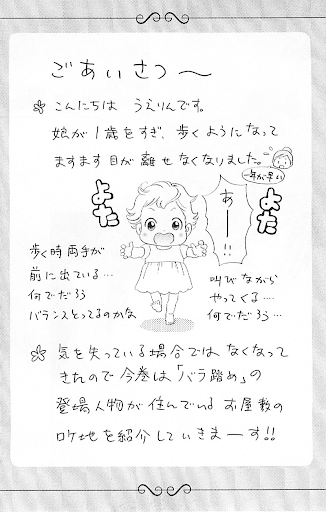 ごあいさつ〜
こんにちは うえりんです。
娘が1歳をすぎ、歩くようになって
ますます目が離せなくなりました。
一年が早い
よた
あーー!!
よた
歩く時両手が
前に出ている…
何でだろう
バランスとってるのかな
叫びながら
やってくる…
何でだろう…
気を失っている場合ではなくなって
きたので今巻は「バラ踏め」の
登場人物が住んでいるお屋敷の
ロケ地を紹介していきまーす!!